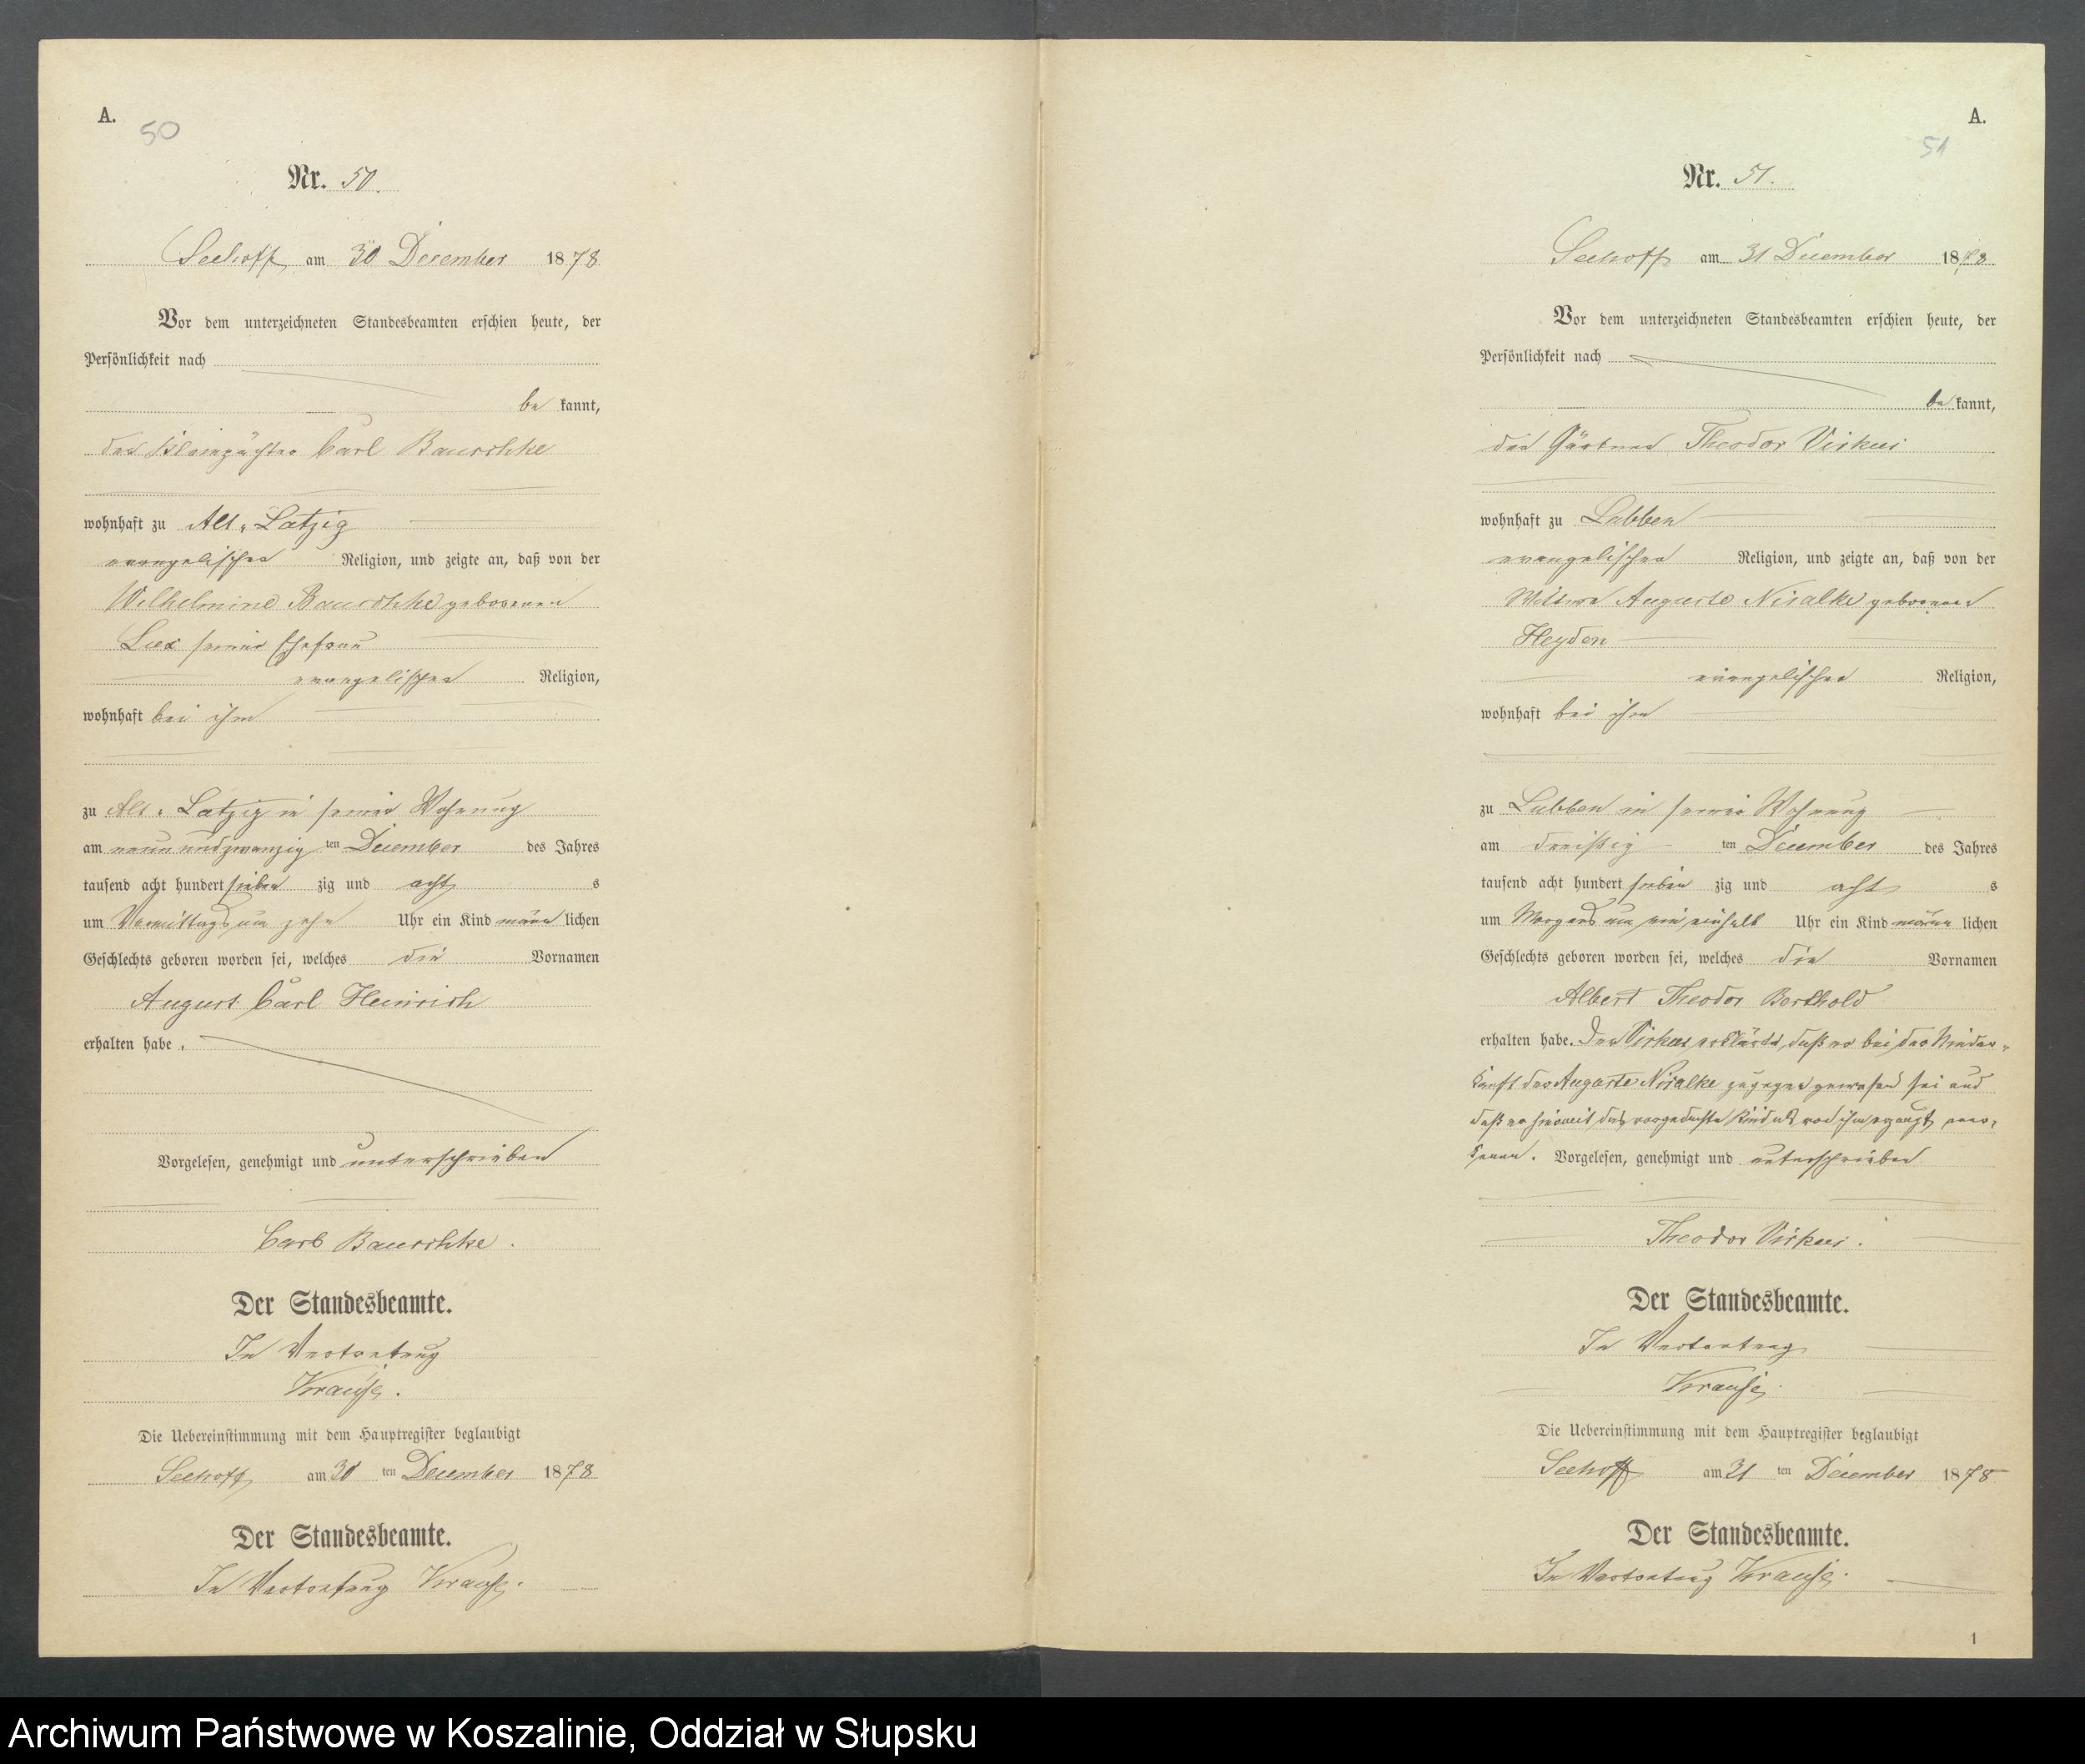 A.
50
Nr. 50.
Seehoff am 30 December 1878
Vor dem unterzeichneten Standesbeamten erschien heute, der
Persönlichkeit nach
be kannt,
der Kleinpächter Carl Bauschke
wohnhaft zu Alt-Latzig
evangelischer Religion, und zeigte an, daß von der
Wilhelmine Bauschke geborenen
seiner Ehefrau
evangelischer Religion,
wohnhaft bei ihm
zu Alt-Latzig in seiner Wohnung
am neun und zwanzig ten December des Jahres
tausend acht hundert sieben zig und acht s
um Vormittags um zehn Uhr ein Kind männ lichen
Geschlechts geboren worden sei, welches die Vornamen
August Carl Heinrich
erhalten habe.
Vorgelesen, genehmigt und unterschrieben
Carl Bauschke.
Der Standesbeamte.
In Vertretung
Krause.
Die Uebereinstimmung mit dem Hauptregister beglaubigt
Seehoff am 30 ten December 1878
Der Standesbeamte.
In Vertretung Krause.
A.
51
Nr. 51.
Seehoff am 31 December 1878
Vor dem unterzeichneten Standesbeamten erschien heute, der
Persönlichkeit nach
be kannt,
der Gärtner Theodor Virkus
wohnhaft zu Lubben
evangelischer Religion, und zeigte an, daß von der
Wittwe Auguste geborenen
Heyden
evangelischer Religion,
wohnhaft bei ihm
zu Lubben in seiner Wohnung
am dreißig ten December des Jahres
tausend acht hundert sieben zig und acht s
um Morgens um ein einhalb Uhr ein Kind männ lichen
Geschlechts geboren worden sei, welches die Vornamen
Albert Theodor Berthold
erhalten habe. Der Virkus erklärte, daß er bei der Nieder-
kunft der Auguste zugegen gewesen sei und
daß er hiermit das vorgedachte Kind als von ihm erzeugt aner-
kenne. Vorgelesen, genehmigt und unterschrieben
Theodor Virkus.
Der Standesbeamte.
In Vertretung
Krause.
Die Uebereinstimmung mit dem Hauptregister beglaubigt
Seehoff am 31 ten December 1878
Der Standesbeamte.
In Vertretung Krause.
1
Archiwum Państwowe w Koszalinie, Oddział w Słupsku